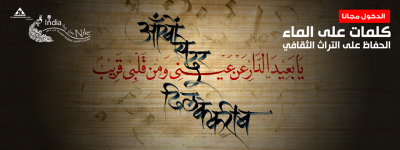 الدخول مجانا
كلمات على الماء
الحفاظ على التراث الثقافي
India
by the Nile
आँखों
से दूर
يا بعيد الدار عن عيني ومن قلبي قريب
दिल के करीब